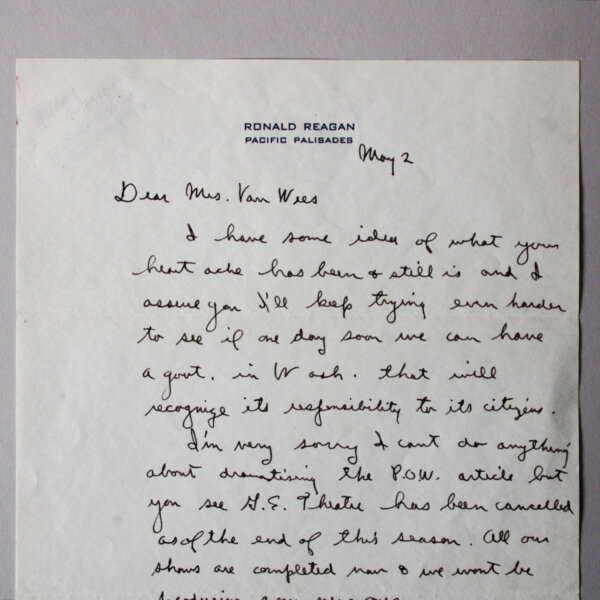 RONALD REAGAN
PACIFIC PALISADES
May 2
Dear Mrs. Van Wees
I have some idea of what your
heart ache has been & still is and I
assure you I'll keep trying even harder
to see if one day soon we can have
a govt. in Wash. that will
recognize its responsibility to its citizens.
I'm very sorry I cant do anything
about dramatizing the P.O.W. article but
you see G.E. Theatre has been cancelled
as of the end of this season. All our
shows are completed now & we wont be
producing any